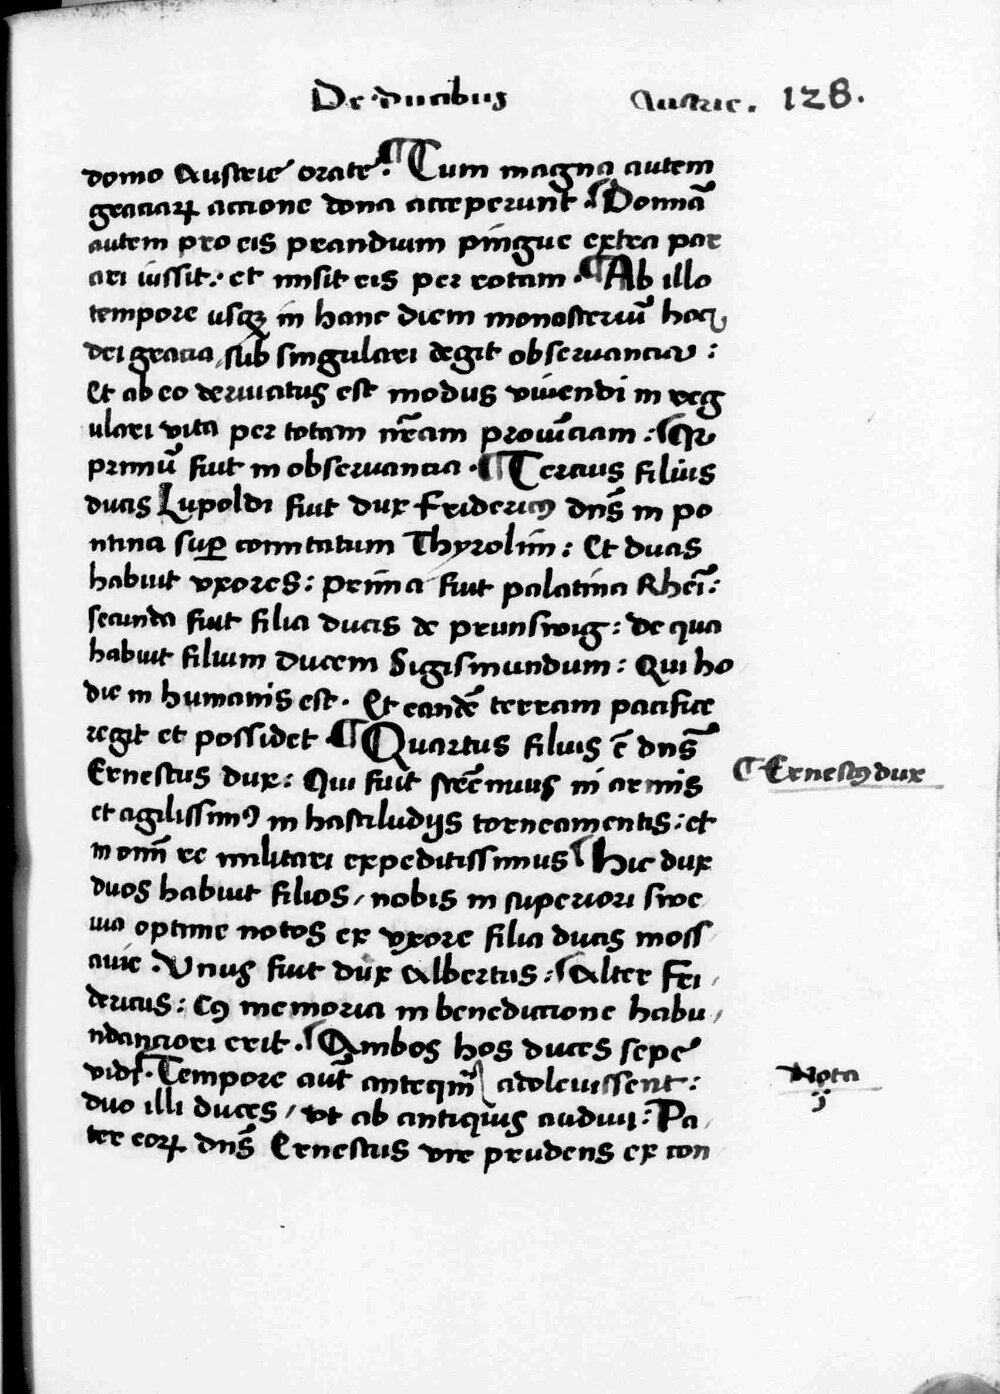 De ducibus Austrie . 128.
domo Austrie orate . ¶ Cum magna autem
graciaꝝ accione dona acceperunt . Domnā
autem pro eis prandium pingue extra par
ari iussit : et misit eis per rotam . ¶ Ab illo
tempore usqꝫ in hanc diem monasteriū hoc
dei gracia sub singulari degit obseruancia :
Et ab eo deriuatus est modus viuendi in reg
ulari vita per totam nr̄am prouīciam :
primū fuit in obseruancia . ¶ Tercius filius
ducis Lupoldi fuit dux Fridericꝰ dn̄s in po
ntina suꝑ comitatum Thyrolim : Et duas
habuit vxores : prima fuit palatina Rheī :
secunda fuit filia ducis de prunswig : de qua
habuit filium ducem Sigismundum : Qui ho
die in humanis est . Et eandē terram pacifice
regit et possidet . ¶ Quartus filius ē dn̄s
Ernestus dux : Qui fuit stren̄uus in armis
et agilissimꝰ in hastiludijs torneamentis : et
in omī re militari expeditissimus Hic dux
duos habuit filios / nobis in superiori swe
uia optime notos ex vxore filia ducis moss
auie . Vnus fuit dux Albertus : Alter Fri
dericus : Cꝰ memoria in benedictione habu
ndanciori erit . Ambos hos duces sepe
vidi . Tempore aūt anteqm̄ adoleuissent :
duo illi duces / vt ab antiquis audiui : Pa
ter eoꝝ dn̄s Ernestus vir prudens ex con
¶ Ernestꝰ dux
Nota